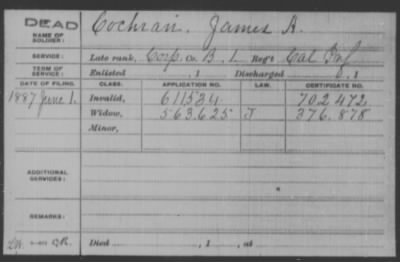 DEAD Cochran, James A.
NAME OF SOLDIER:
SERVICE: Late rank, Corp. Co. B. 1. Reg't Cal Inf
TERM OF SERVICE: Enlisted , 1 Discharged , 1
DATE OF FILING. CLASS. APPLICATION NO. LAW. CERTIFICATE NO.
1887 June 1. Invalid, 611534 702 472
Widow, 563.625 J 376.878
Minor,
ADDITIONAL SERVICES:
REMARKS:
Died , 1 , at